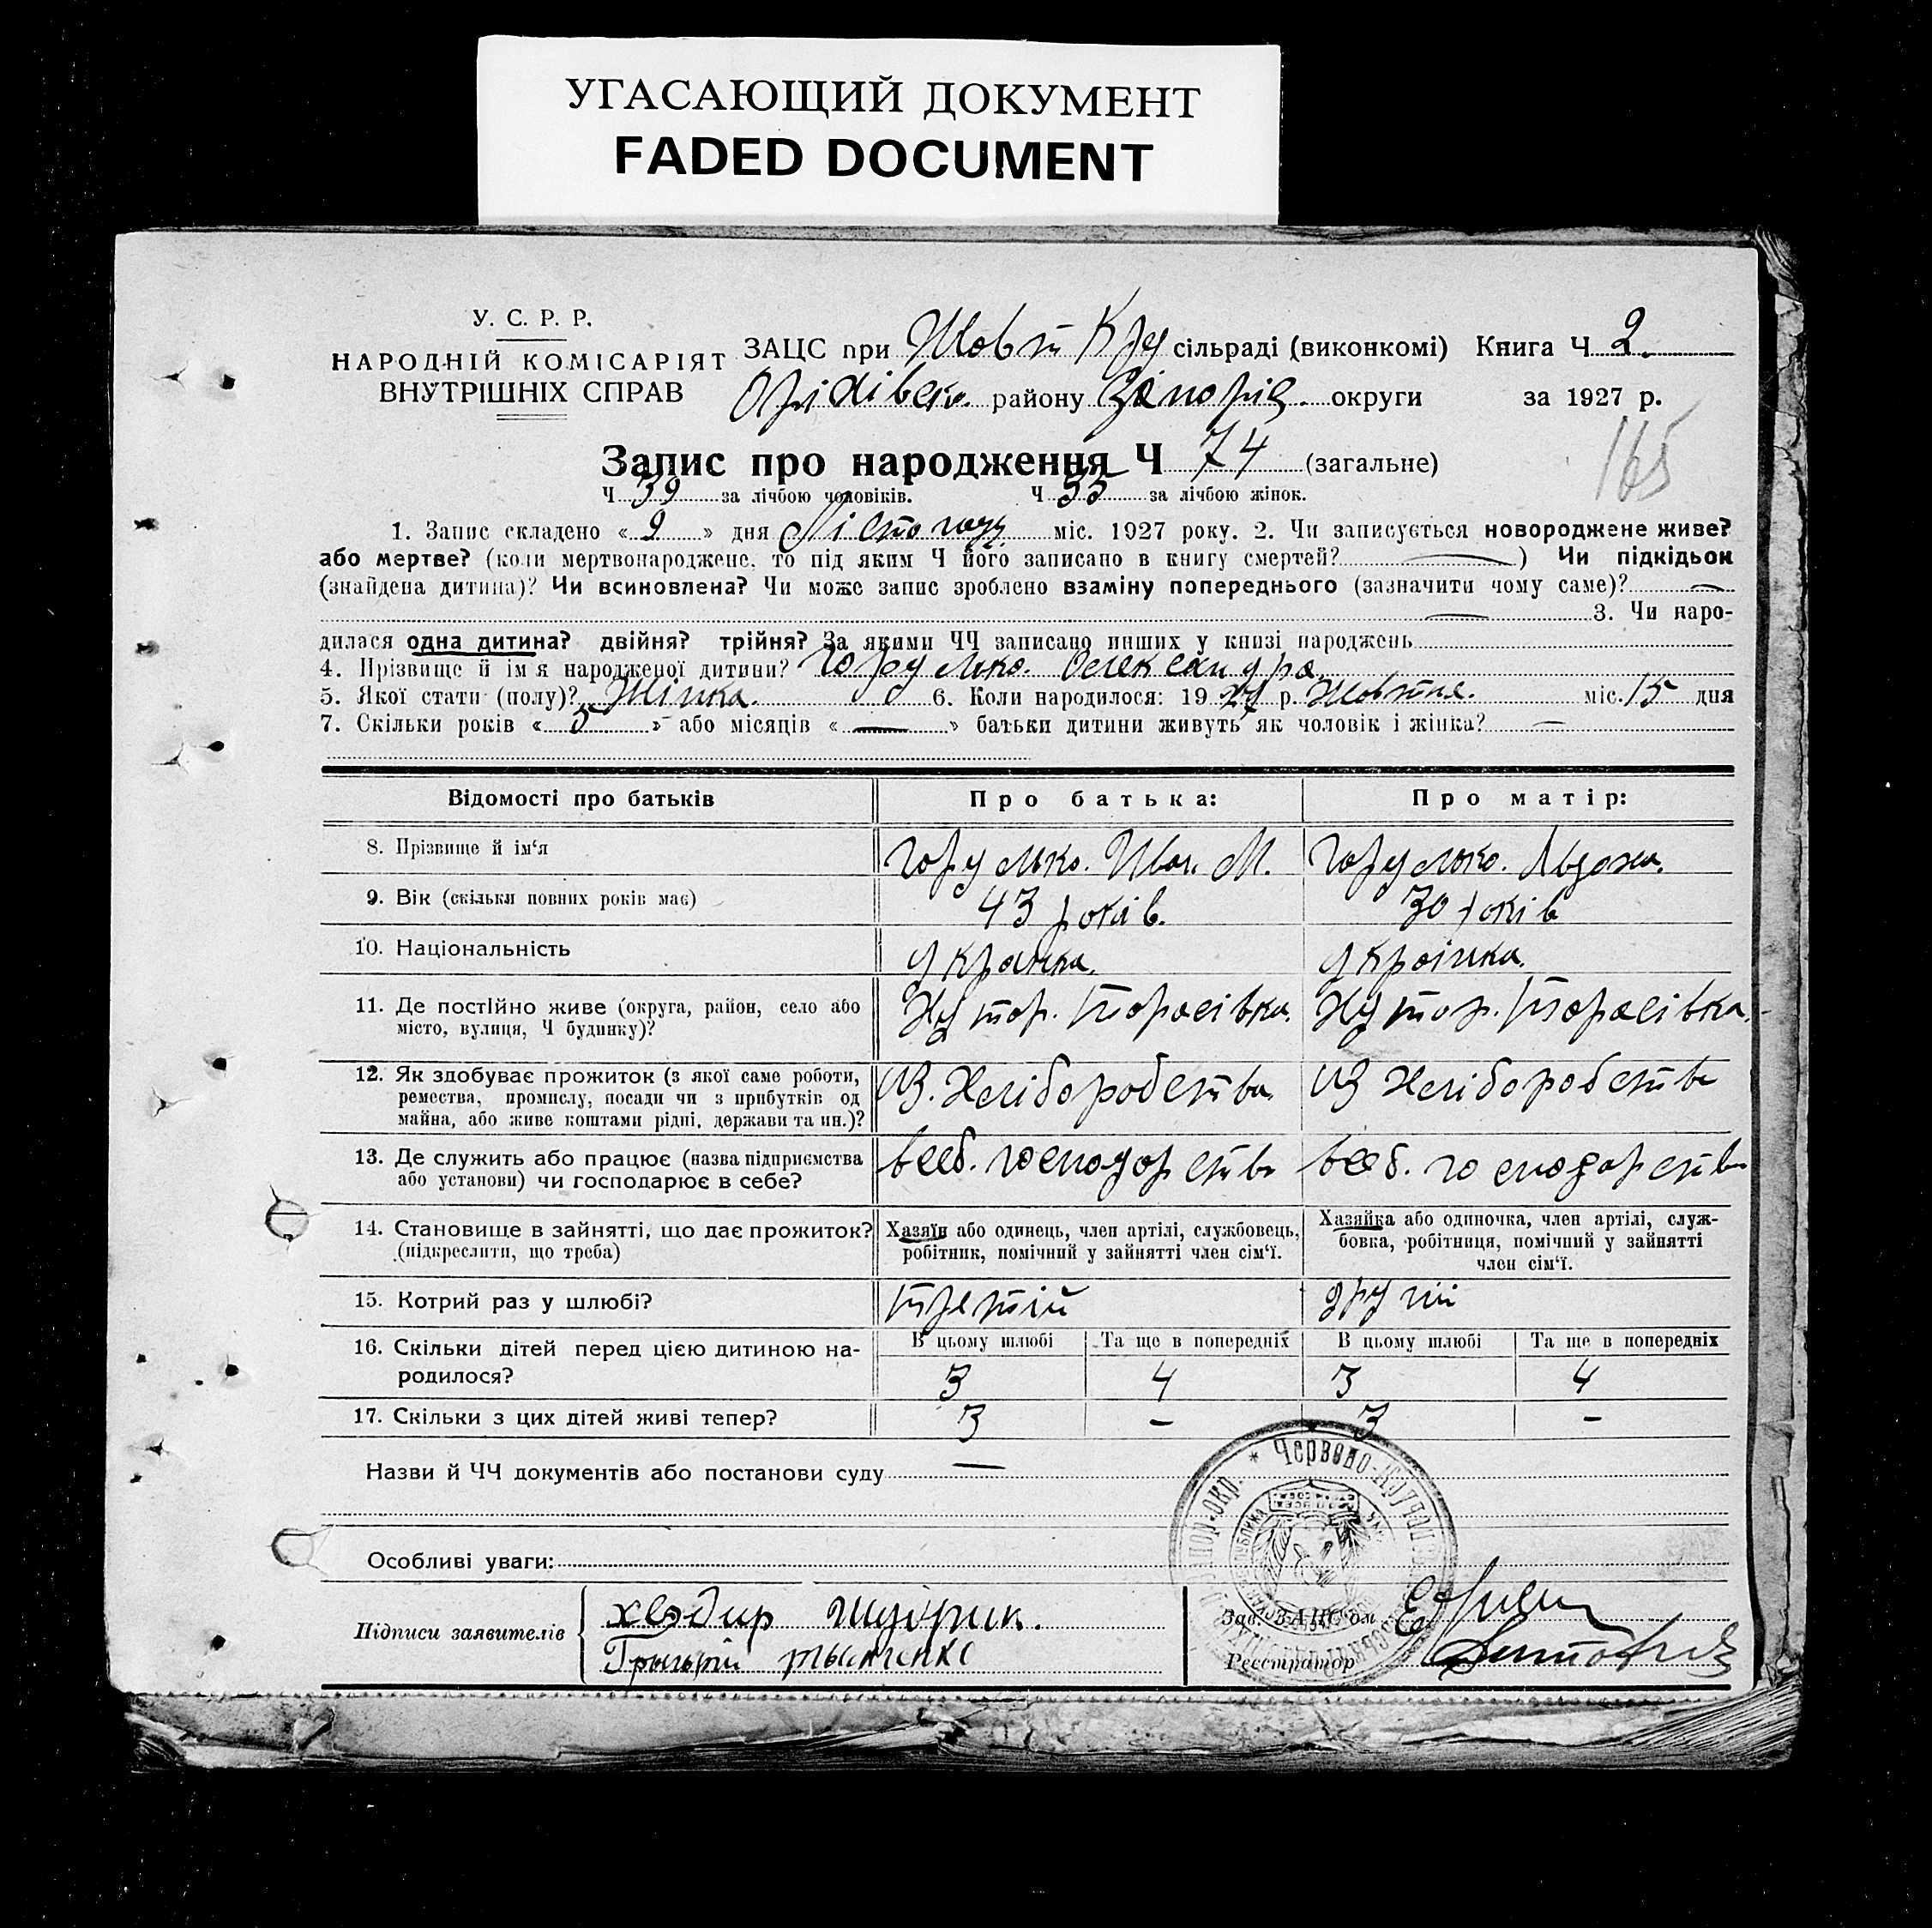 УГАСАЮЩИЙ ДОКУМЕНТ
FADED DOCUMENT
У. С. Р. Р.
НАРОДНІЙ КОМІСАРІЯТ
ВНУТРІШНІХ СПРАВ
ЗАЦС при Жовт Кру сільраді (виконкомі) Книга Ч 2.
Оріхівськ. району Запоріз. округи за 1927 р.
165
Запис про народження Ч 74 (загальне)
Ч 39 за лічбою чоловіків. Ч 35 за лічбою жінок.
1. Запис складено « 9 » дня Лістопаду міс. 1927 року. 2. Чи записується новороджене живе?
або мертве? (коли мертвонароджене, то під яким Ч його записано в книгу смертей? — ) Чи підкідьок
(знайдена дитина)? Чи всиновлена? Чи може запис зроблено взаміну попереднього (зазначити чому саме)? —
— 3. Чи наро-
дилася одна дитина? двійня? трійня? За якими ЧЧ записано инших у книзі народжень
4. Прізвище й ім'я народженої дитини? Горулько. Олександра.
5. Якої стати (полу)? Жінка. 6. Коли народилося: 1927 р. Жовтня. міс. 15 дня
7. Скільки років « 5 » або місяців « — » батьки дитини живуть, як чоловік і жінка? —
Відомості про батьків Про батька: Про матір:
8. Прізвище й ім'я Горулько. Іван. М. Горулько. Явдоха.
9. Вік (скільки повних років має) 43 років. 30 років
10. Національність українка. українка.
11. Де постійно живе (округа, район, село або
місто, вулиця, Ч будинку)? Хутор. Тарасівка. Хутор. Тарасівка.
12. Як здобуває прожиток (з якої саме роботи,
ремества, промислу, посади чи з прибутків од
майна, або живе коштами рідні, держави та ин.)? Из. Хеліборобства Из Хеліборобств
13. Де служить або працює (назва підприємства
або установи) чи господарює в себе? всеб. господарств всеб. господарств
14. Становище в зайнятті, що дає прожиток?
(підкреслити, що треба)
Хазяїн або одинець, член артілі, службовець,
робітник, помічний у зайнятті член сім'ї.
Хазяйка або одиночка, член артілі, служ-
бовка, робітниця, помічний у зайнятті
член сім'ї.
15. Котрий раз у шлюбі? третій другій
16. Скільки дітей перед цією дитиною на-
родилося?
В цьому шлюбі Та ще в попередніх В цьому шлюбі Та ще в попередніх
3 4 3 4
17. Скільки з цих дітей живі тепер? 3 – 3 –
Назви й ЧЧ документів або постанови суду —
Особливі уваги:
Підписи заявителів
Зав. ЗАЦС'ом
Реєстратор